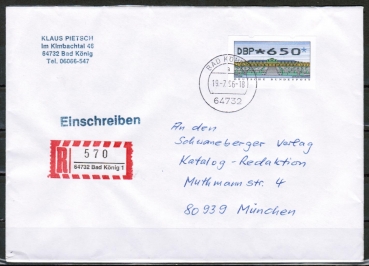 KLAUS PIETSCH
Im Kimbachtal 46
64732 Bad König
Tel. 06066-547
DBP *650*
BAD KÖNIG
64732
Einschreiben
R
570
64732 Bad König 1
An den
Schwaneberger Verlag
Katalog-Redaktion
Muthmannstr. 4
80939 München